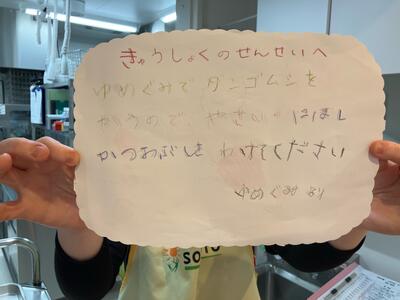 きゅうしょくのせんせいへ
ゆめぐみで ダンゴムシを
かうので、やさいの ははし
かつおぶしを わけてください
ゆめぐみ より